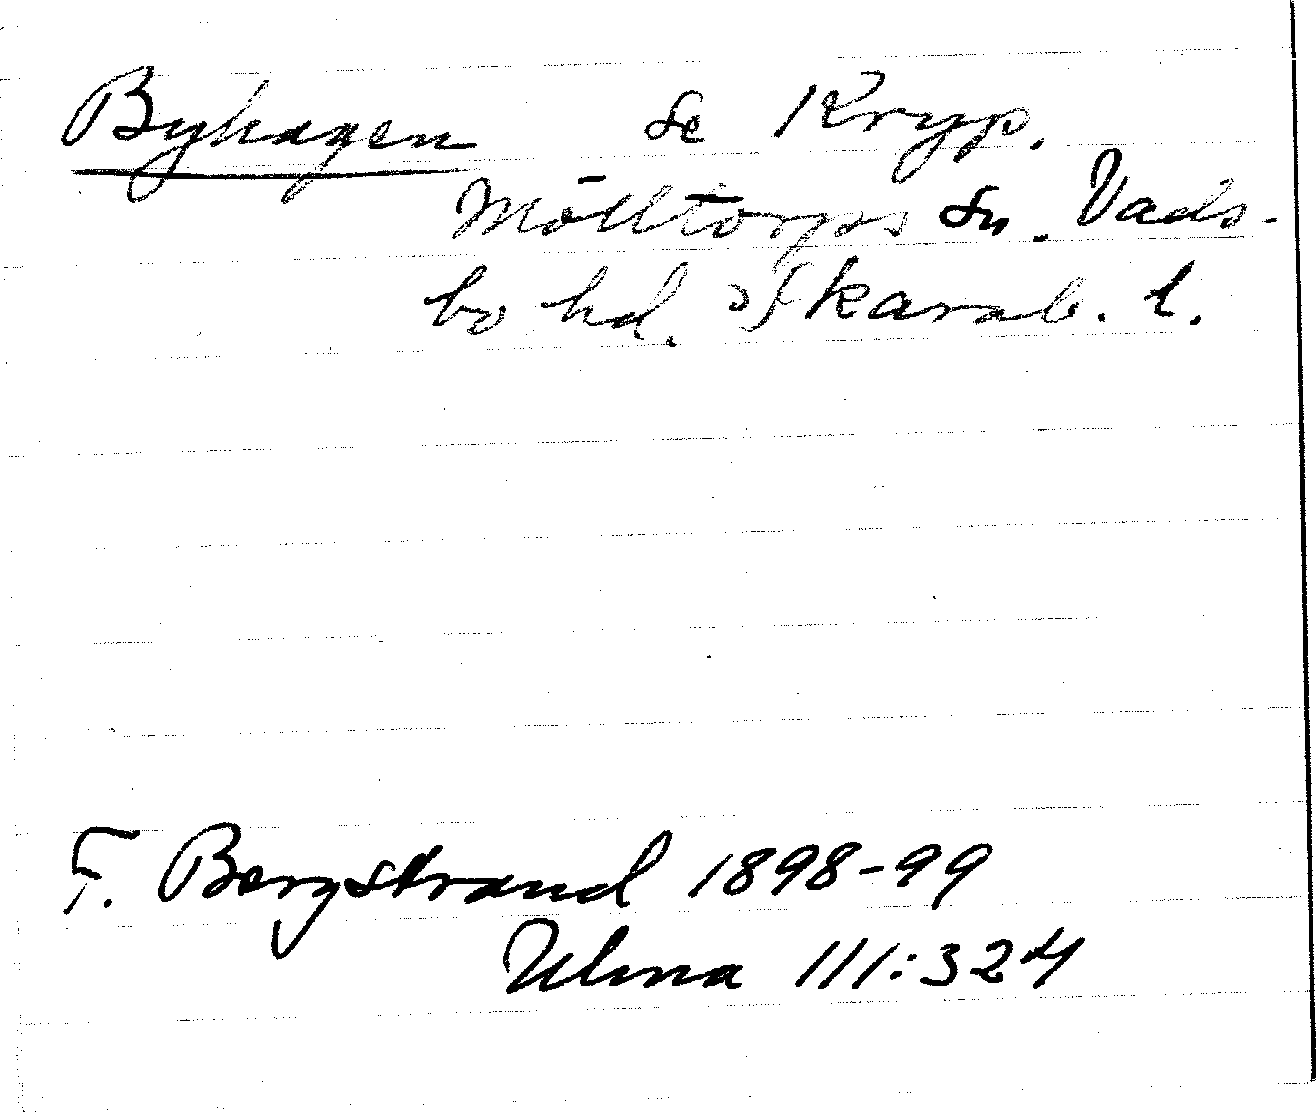 Byhagen se Kryp.
Mölltorps sn. Vads-
bo hd. Skarab. l.
F. Bergstrand 1898-99
Ulma 111:324